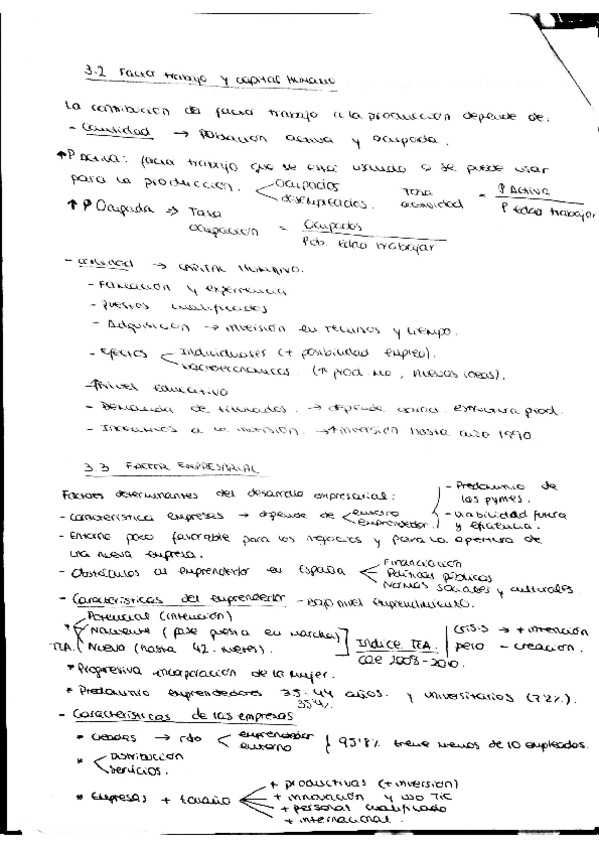 3.2 Factor trabajo y capital humano
La contribución del factor trabajo a la producción depende de:
- Cantidad → Población activa y ocupada.
↑P Activa: factor trabajo que se está usando o se puede usar
para la producción. < Ocupados
desempleados. Tasa actividad = P Activa / P edad trabajar
↑ P Ocupada → Tasa ocupación = Ocupados / Pob. Edad trabajar
- Calidad → CAPITAL HUMANO.
- Formación y experiencia
- Puestos cualificados
- Adquisición → inversión en recursos y tiempo.
- Efectos < Individuales (+ posibilidad empleo).
Macroeconómicos (↑ prod. , nuevas ideas).
- ↑Nivel Educativo
- Demanda de titulados. → depende estructura prod.
- Incentivos a la inversión. → + inversión hasta año 1990
3.3 FACTOR EMPRESARIAL
Factores determinantes del desarrollo empresarial:
- Predominio de
las pymes.
- Característica empresas → depende de < entorno
emprendedor
- Viabilidad futura
y eficiencia.
- Entorno poco favorable para los negocios y para la apertura de
una nueva empresa.
- Obstáculos al emprendedor en España < Financiación
Políticas públicas
Normas sociales y culturales
- Características del emprendedor - Bajo nivel emprendimiento.
* Potencial (intención)
* Naciente (fase puesta en marcha)
TEA. Nuevo (hasta 42 meses).
Indice TEA.
cae 2008-2010.
Crisis → + intención
pero - creación.
* Progresiva incorporación de la mujer.
* Predominio emprendedores 35-44 años. y universitarios (72%).
35'4%
- Características de las empresas
* Creadas → rdo < emprendedor
entorno } 95'8% tiene menos de 10 empleados.
* < Distribución
Servicios.
* Empresas + tamaño < + productivas (+ inversión)
+ innovación y uso TIC
+ personal cualificado
+ internacional.